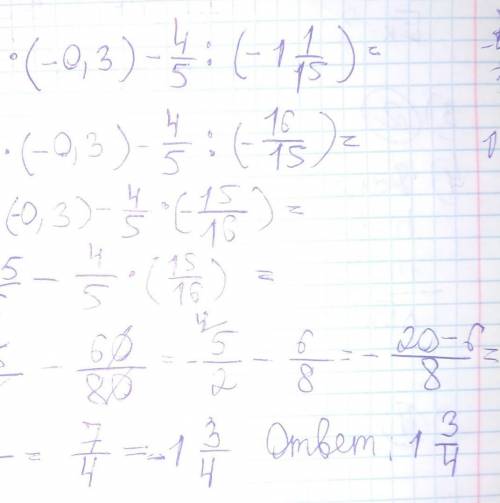 ·(-0,3) - 4/5 : (-1 1/15) =
·(-0,3) - 4/5 : (-16/15) =
(-0,3) - 4/5 · (-15/16) =
5 - 4/5 · (15/16) =
- 60/80 = - 5/2 - 6/8 = - 20-6/8 =
= 7/4 = -1 3/4 Ответ: 1 3/4